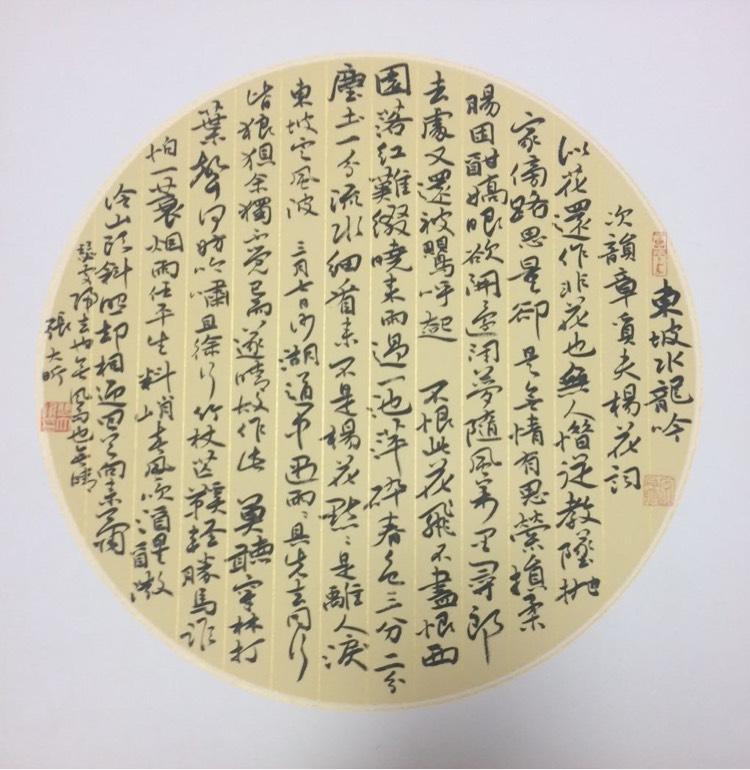 東坡水龍吟
次韻章質夫楊花詞
似花還作非花也無人惜從教墜抛
家傍路思量卻是無情有思縈損柔
腸困酣嬌眼欲開還閉夢隨風萬里尋郎
去處又還被鶯呼起 不恨此花飛不盡恨西
園落紅難綴曉來雨過一池萍碎春色三分二分
塵土一分流水細看來不是楊花點〻是離人淚
東坡定風波 三月七日沙湖道中遇雨〻具先去同行
皆狼狽余獨不覺已而遂晴故作此 莫聽穿林打
葉聲何妨吟嘯且徐行竹杖芒鞋輕勝馬誰
怕一蓑烟雨任平生料峭春風吹酒醒微〻
冷山頭斜照却相迎回首向來蕭
瑟處歸去也無風雨也無晴
張大昕